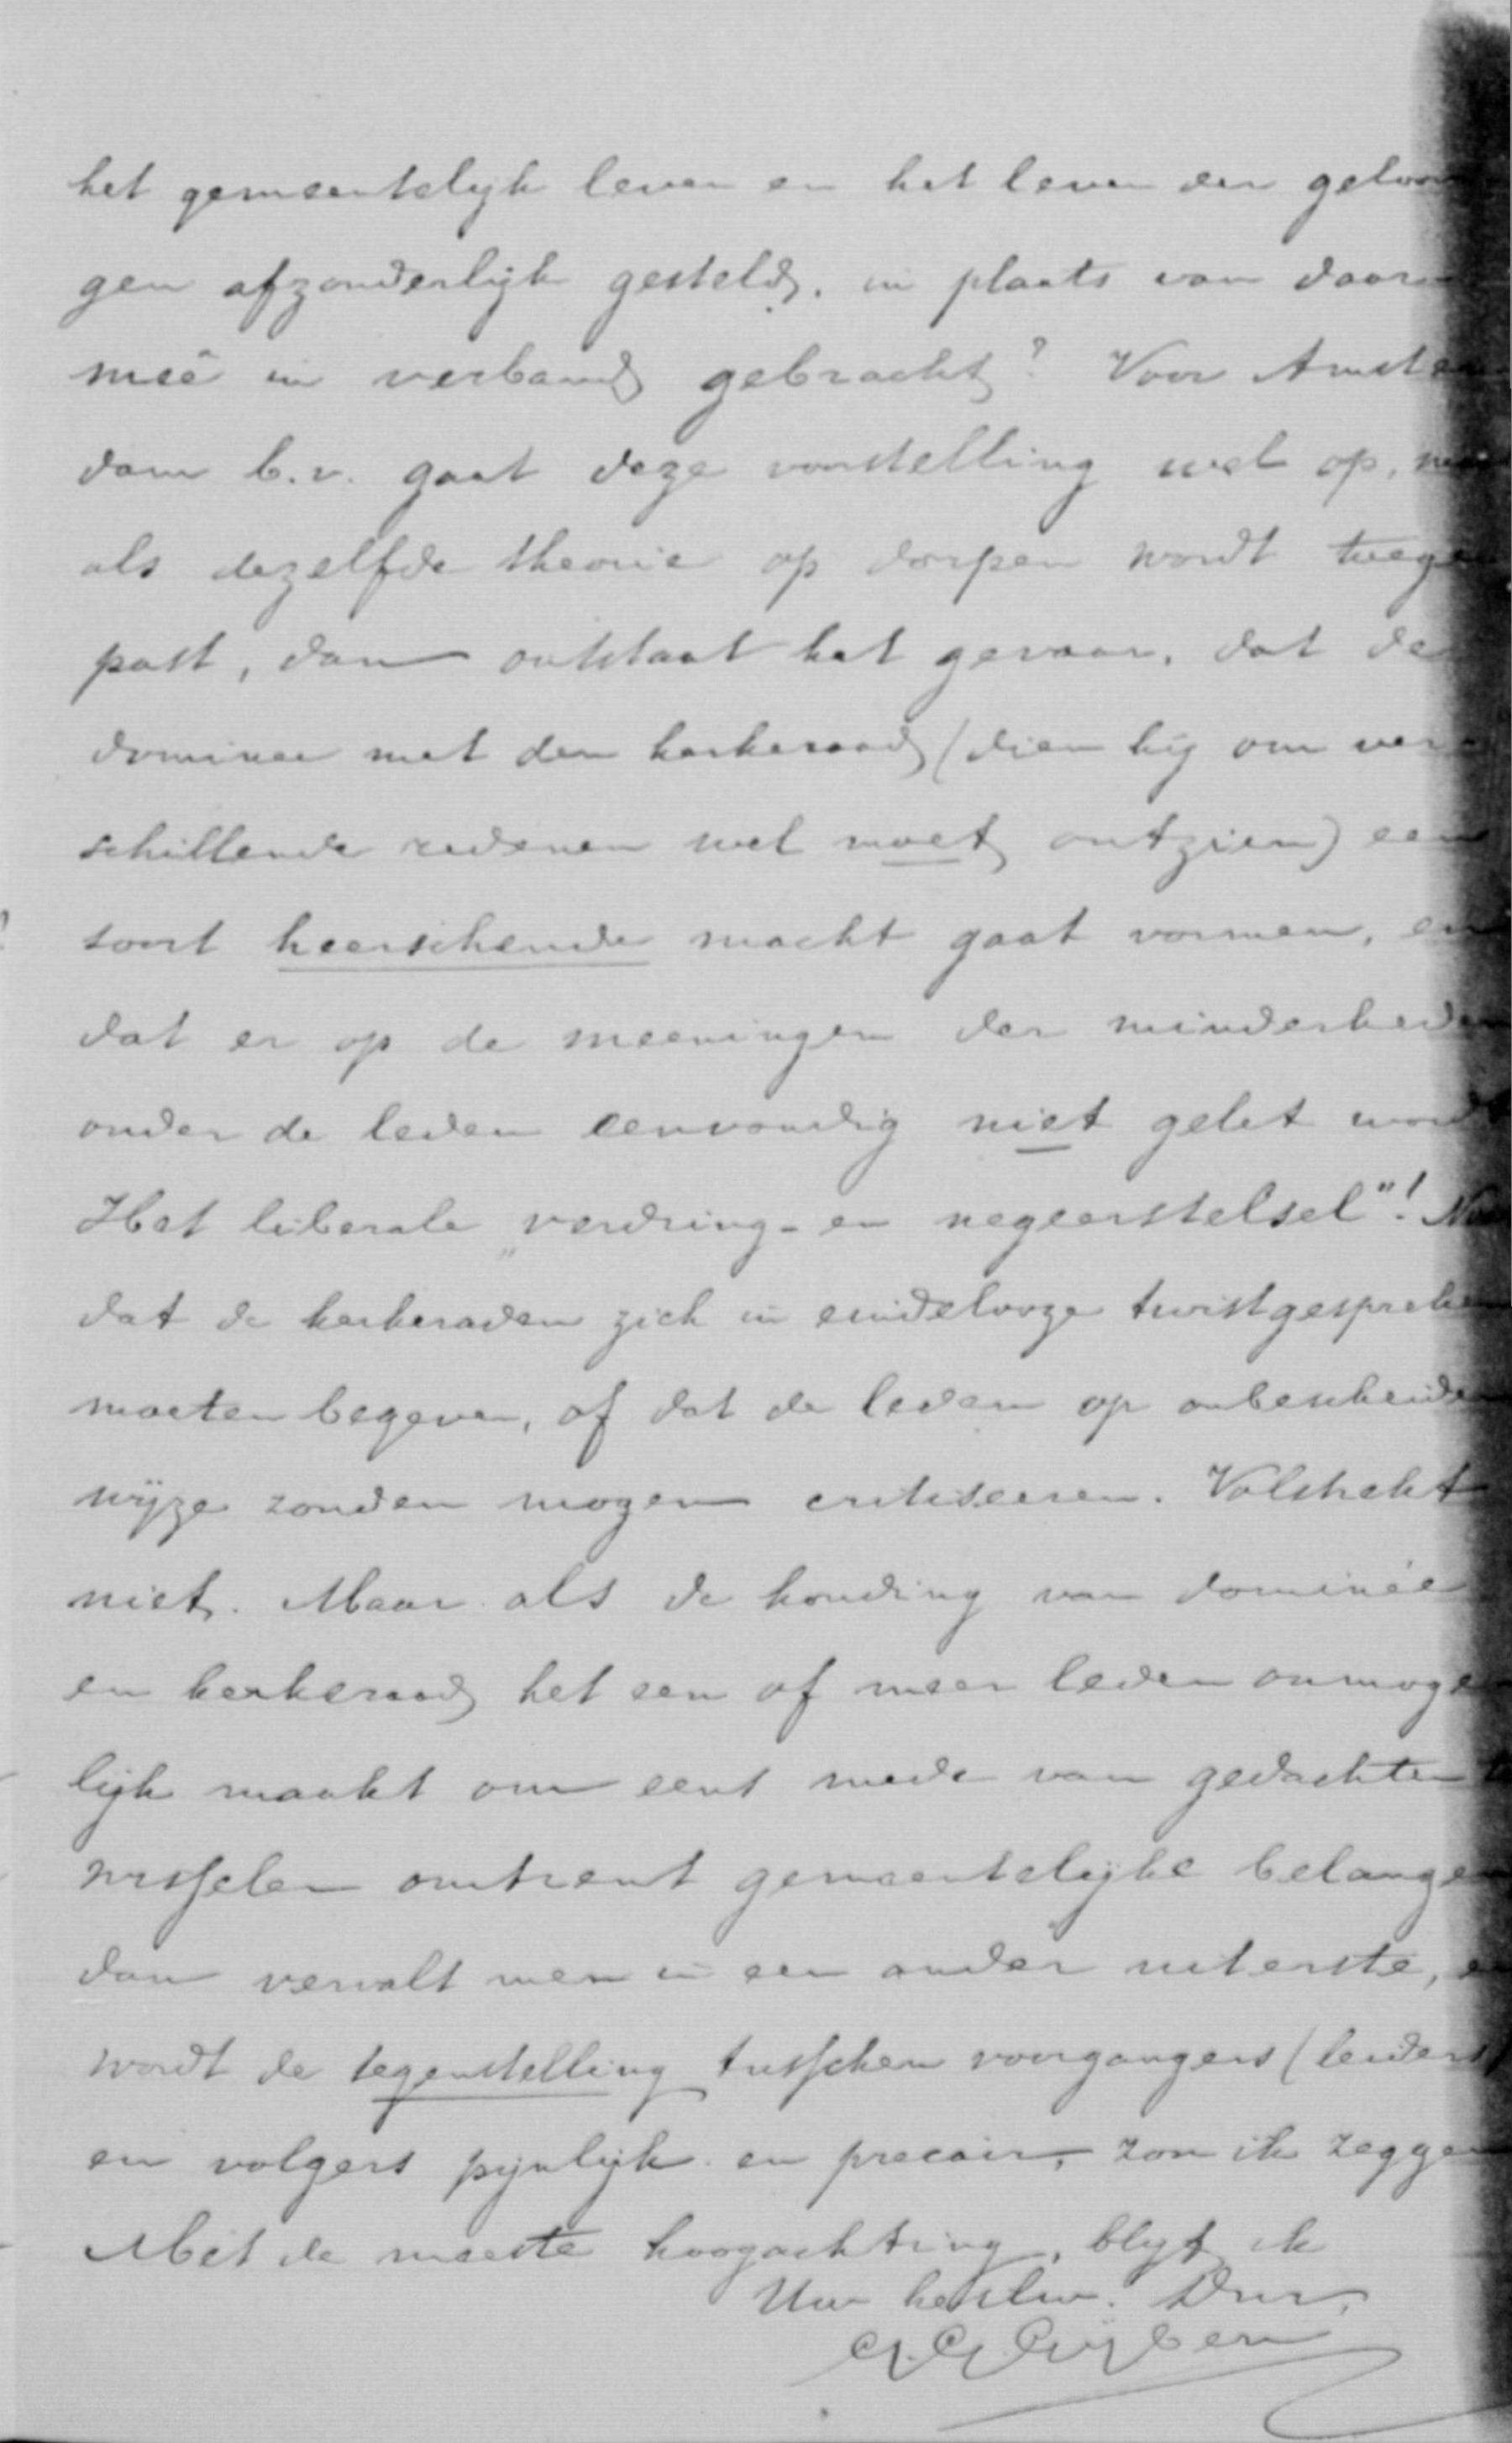 het gemeentelijk leven en het leven der geloovi
gen afzonderlijk gesteld, in plaats van daar-
meê in verband gebracht? Voor Amster
dam b.v. gaat deze voorstelling wel op, maar
als dezelfde theorie op dorpen wordt toege
past, dan ontstaat het gevaar, dat de
dominee met den kerkeraad (dien hij om ver-
schillende redenen wel moet ontzien) een
soort heerschende macht gaat vormen, en
dat er op de meeningen der minderheden
onder de leden eenvoudig niet gelet wordt
Het liberale „verdring- en negeerstelsel"!
dat de kerkeraden zich in eindelooze twistgesprekken
moeten begeven, of dat de leden op onbescheiden
wijze zouden mogen critiseeren. Volstrekt
niet. Maar als de houding van dominée
en kerkeraad het een of meer leden onmoge
lijk maakt om eens mede van gedachten te
wisselen omtrent gemeentelijke belangen
dan vervalt men in een ander uiterste, en
wordt de tegenstelling tusschen voorgangers (leiders)
en volgers pijnlijk en precair, zou ik zeggen
Met de meeste hoogachting, blijf ik
Uw